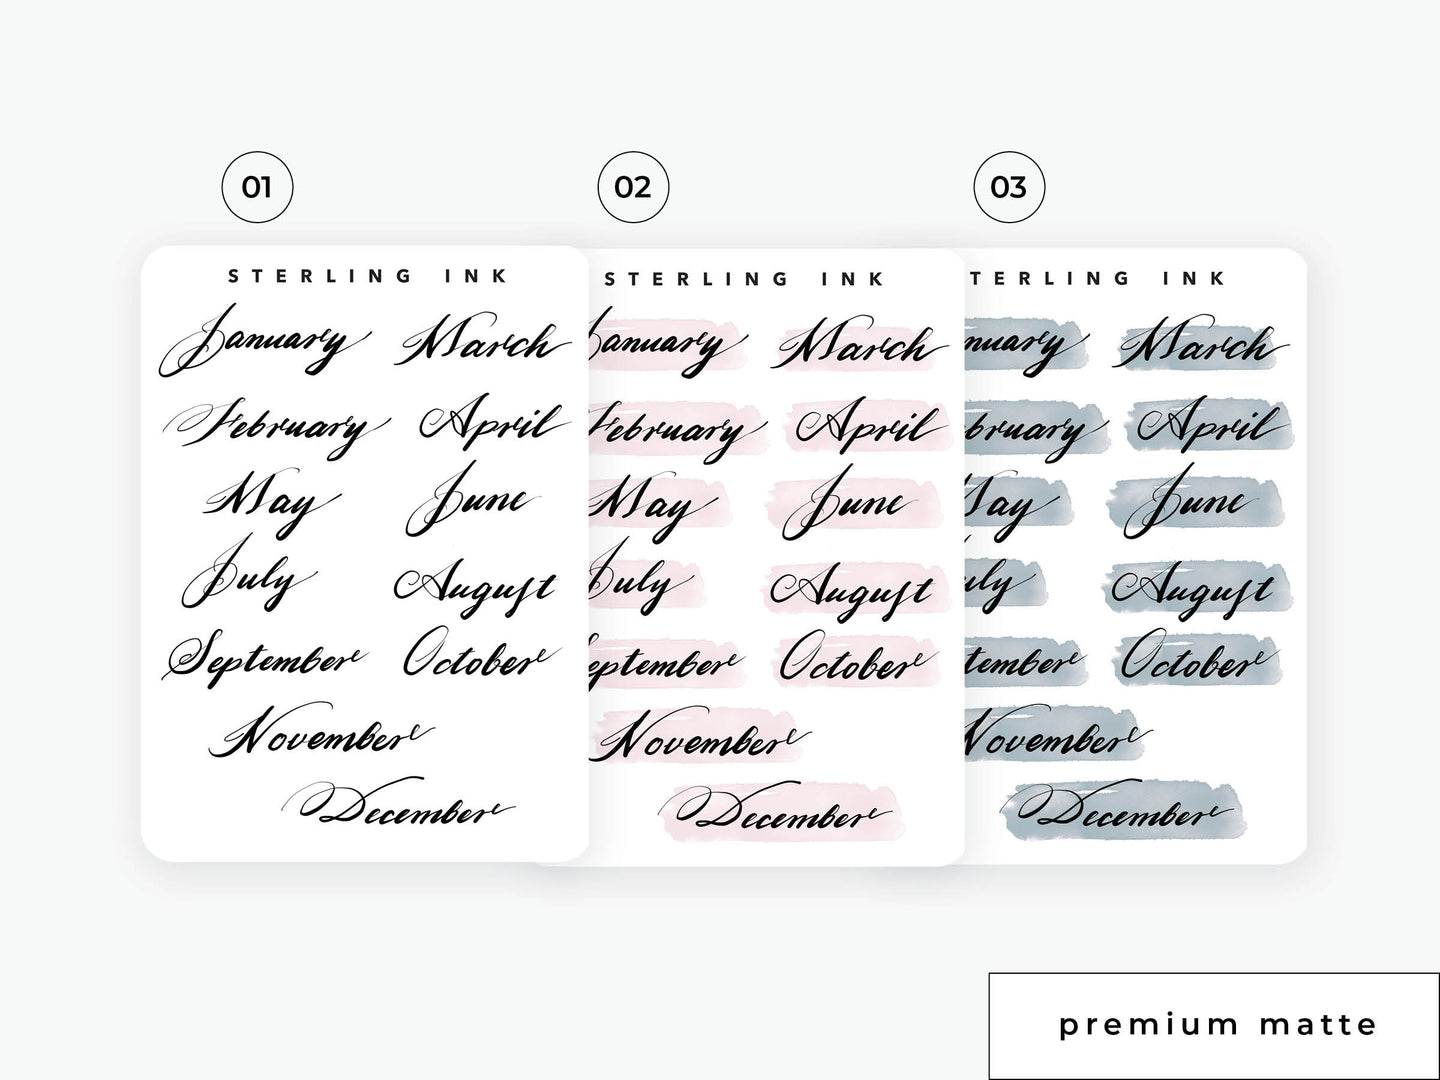 01
02
03
STERLING INK
January March
February April
May June
July August
September October
November
December
STERLING INK
January March
February April
May June
July August
September October
November
December
TERLING INK
nuary March
bruary April
May June
uly August
tember October
November
December
premium matte